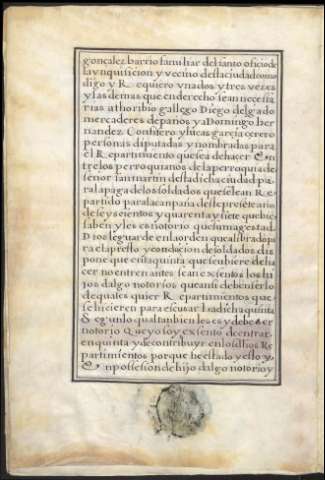 gonçalez barrio familiar del santo oficio de
la ynquisicion y vecino desta ciudad como
digo y Requiero vna dos y tres veces
y las demas que en derecho sean necessa
rias a thoribio gallego Diego delgado
mercaderes de paños y a Domingo her
nandez Confitero y lucas garcia çerero
personas diputadas y nombradas para
el Repartimiento que se a de hacer En
tre los perroquianos de la perroquia de
señor san martin desta dicha ciudad pa
ra la paga de los soldados que se le an Re
partido para la canpaña deste presete año
de seyscientos y quarenta y siete que bie
saben y les es notorio que su magestad
Dios le guarde en la orden que a librado pa
ra el apresto y conducion de soldados dis
pone que en sta quinta que se ubiere de ha
cer no entren antes sean exsentos los hi
jos dalgo notorios que ansi deben serlo
de quales quier Repartimientos que
se hicieren para escusar la dicha quinta
Segun lo qual tanbien les es y debe ser
notorio Que yo soy exsento de entrar
en quinta y de contribuyr en los dhos Re
partimientos porque he estado y esto y
En possesion de hijo dalgo notorio y